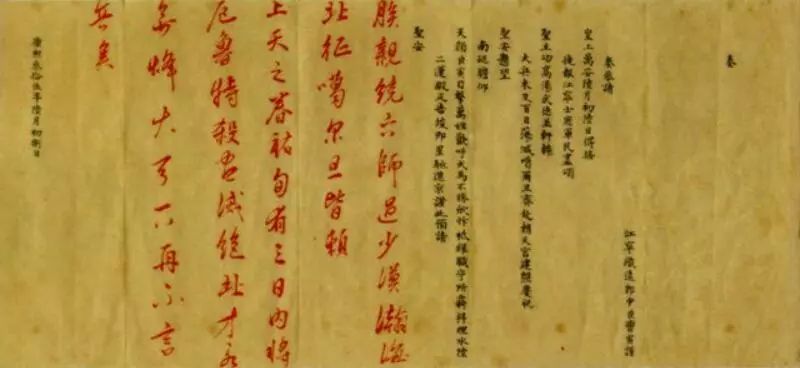 奏
江寧織造郎中臣曹寅謹
奏恭請
皇上萬安陸月初陸日得接
捷報江寧士商軍民盡頌
聖主功高湯武德並軒轅
大兵未及百日蕩滅噶爾旦齊赴朝天宮建醮慶祝
聖安懸望
南廵瞻仰
天顏臣寅目擊萬姓歡呼犬馬不勝欣忭祗緣職守所羈料理水陸
二運緞疋告竣即星馳進京謹此預請
聖安
朕親統六師過少漠瀚海
北征噶尔旦皆賴
上天之眷祐旬有三日內將
厄魯特殺盡滅絕北方永
無烽火可以再不言
兵矣
康熙叁拾伍年陸月初捌日